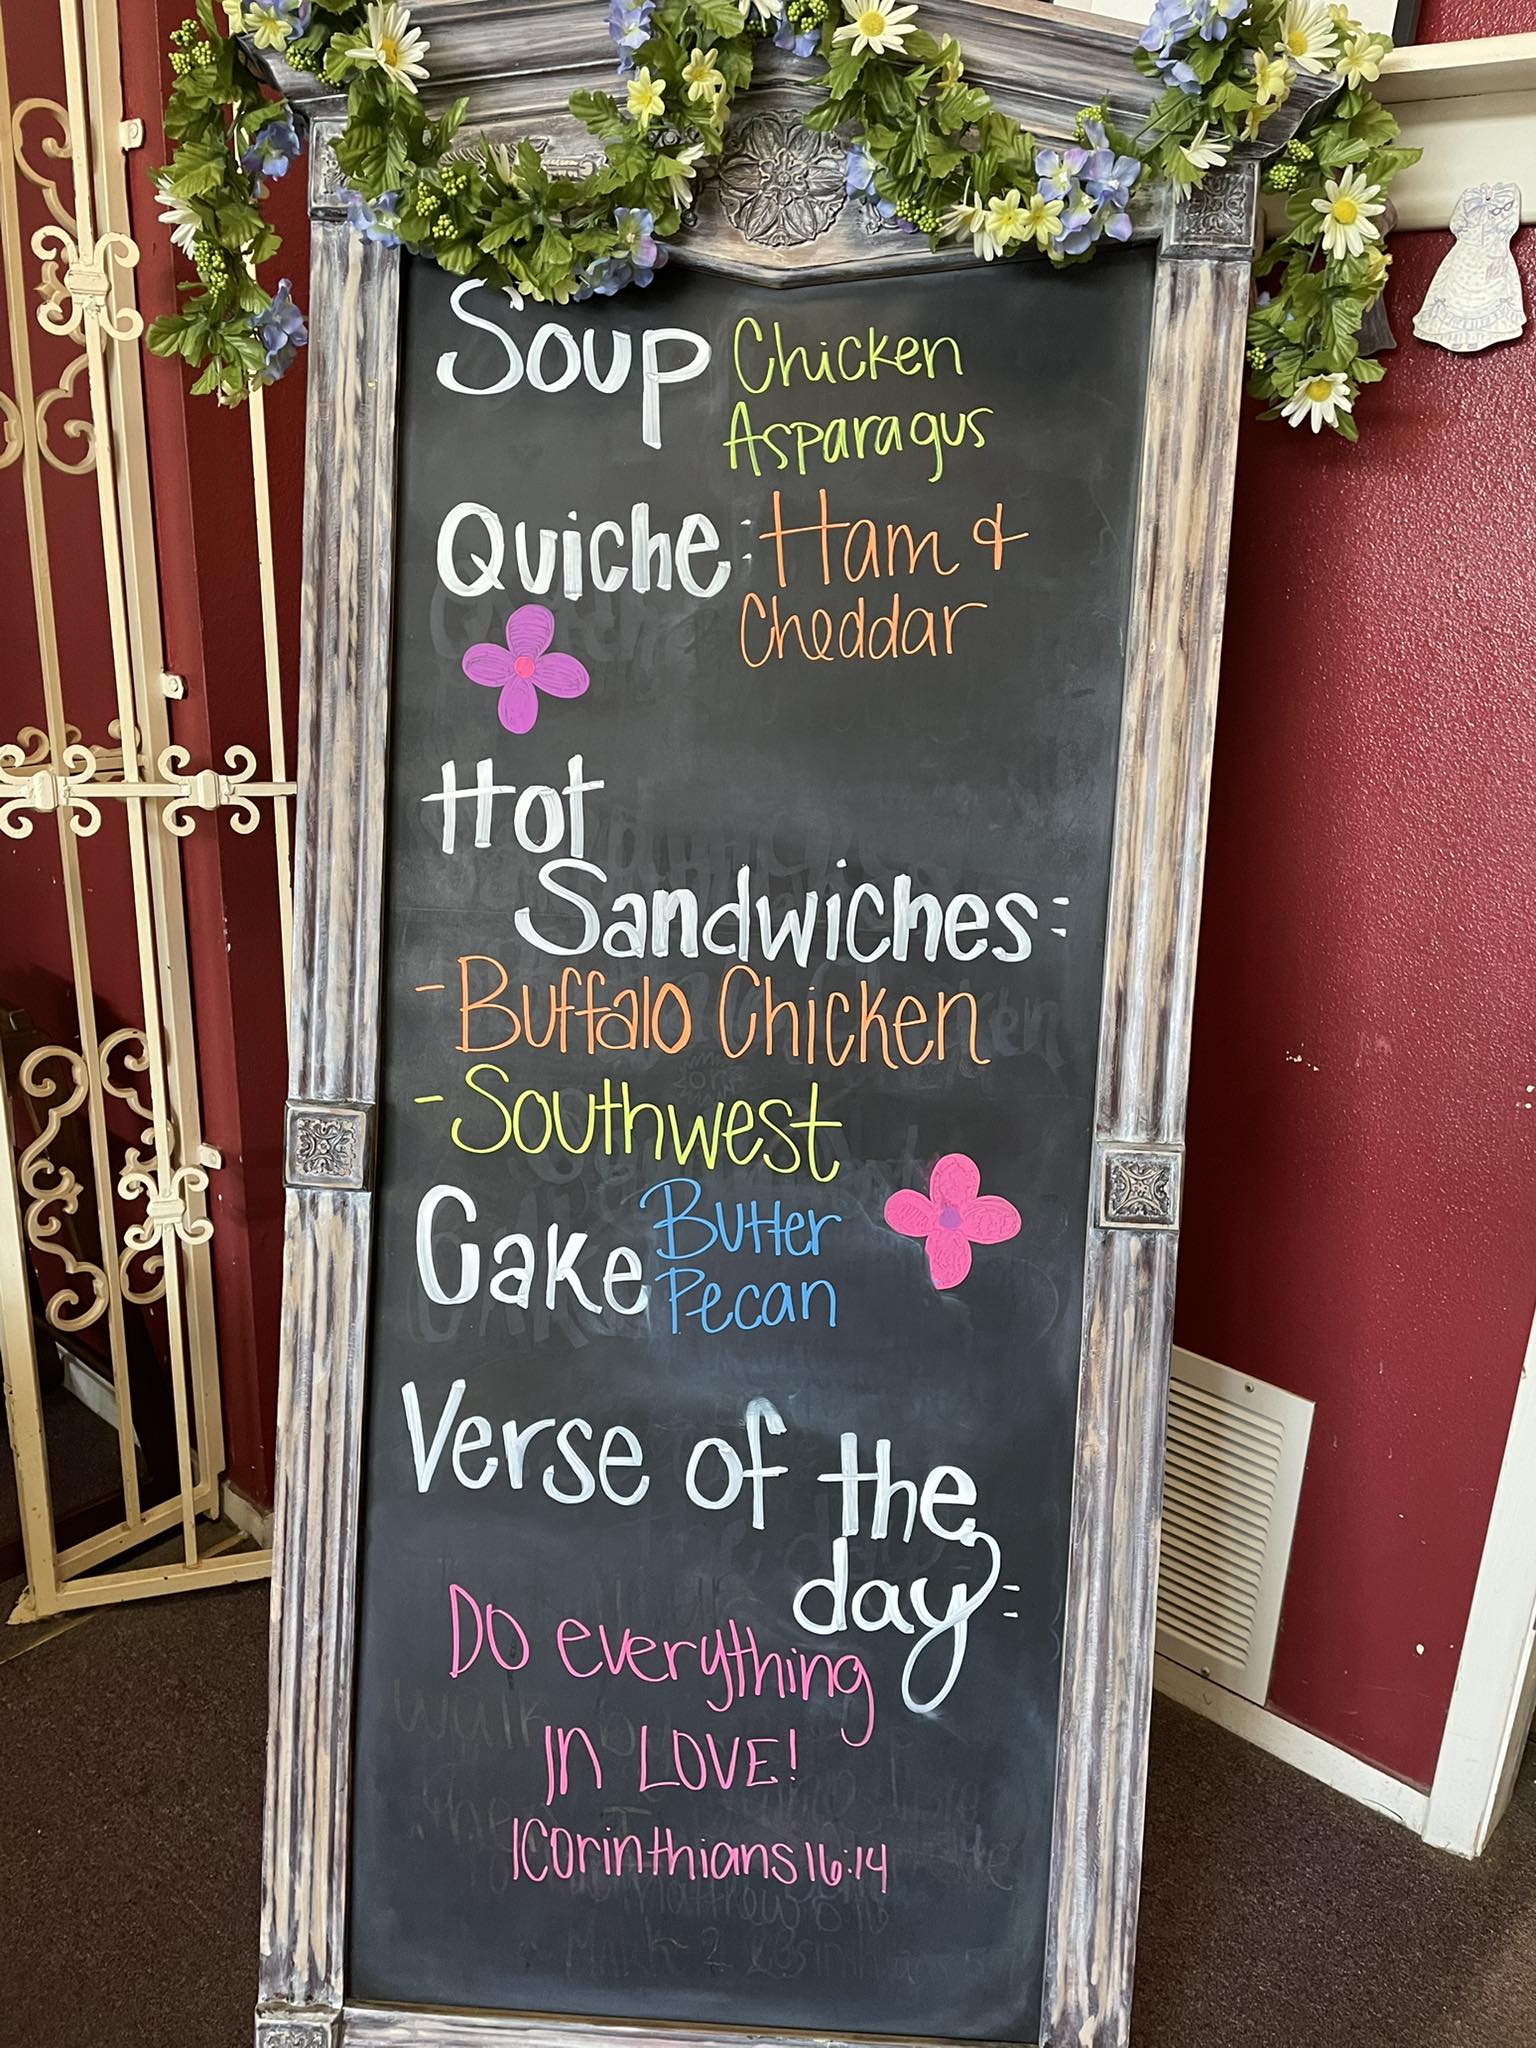 Soup Chicken
Asparagus
Quiche: Ham &
Cheddar
Hot
Sandwiches:
- Buffalo Chicken
- Southwest
Cake Butter
Pecan
Verse of the
day:
Do everything
in LOVE!
1Corinthians 16:14